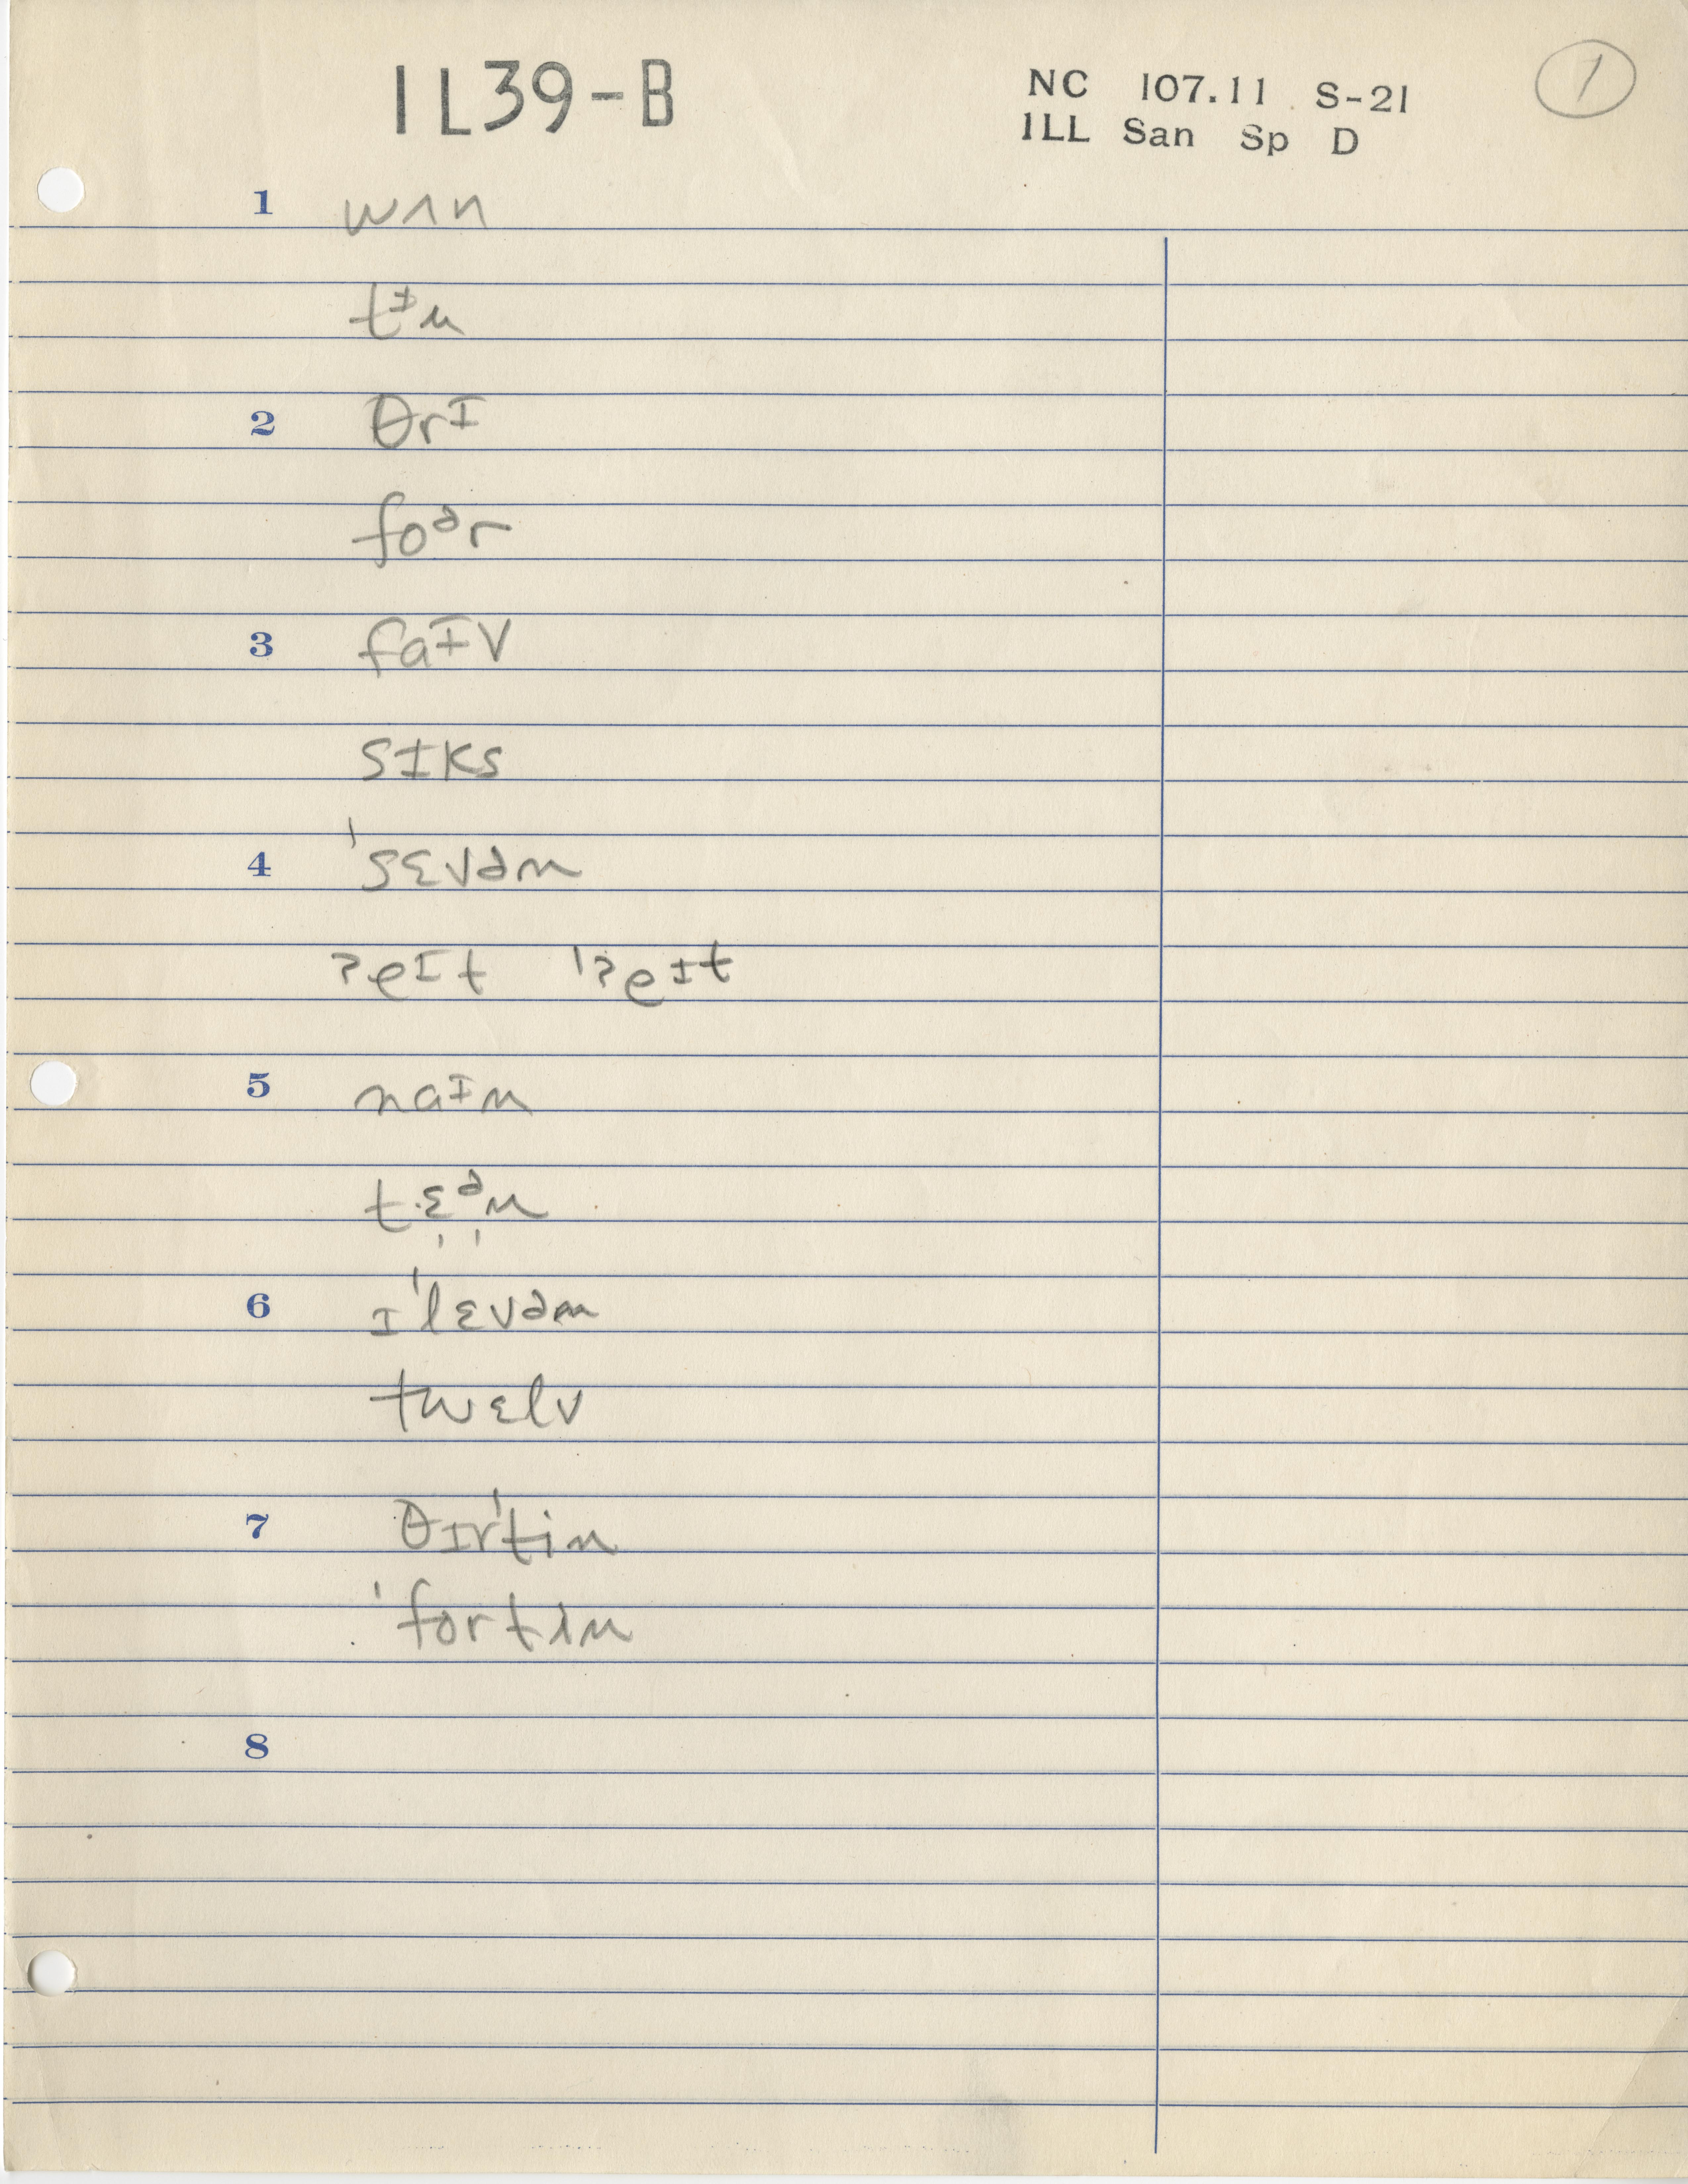 IL39-B
NC 107.11 S-21
ILL San Sp D
1
1 wʌn
tᶤu
2 θrI
foᵊr
3 faɪv
sɪks
4 ˈsɛvəm
ʔeɪt ˈʔeɪt
5 naɪn
t·ɛᵊn
6 ɪˈlɛvəm
twɛlv
7 θɪrˈtin
ˈfortin
8